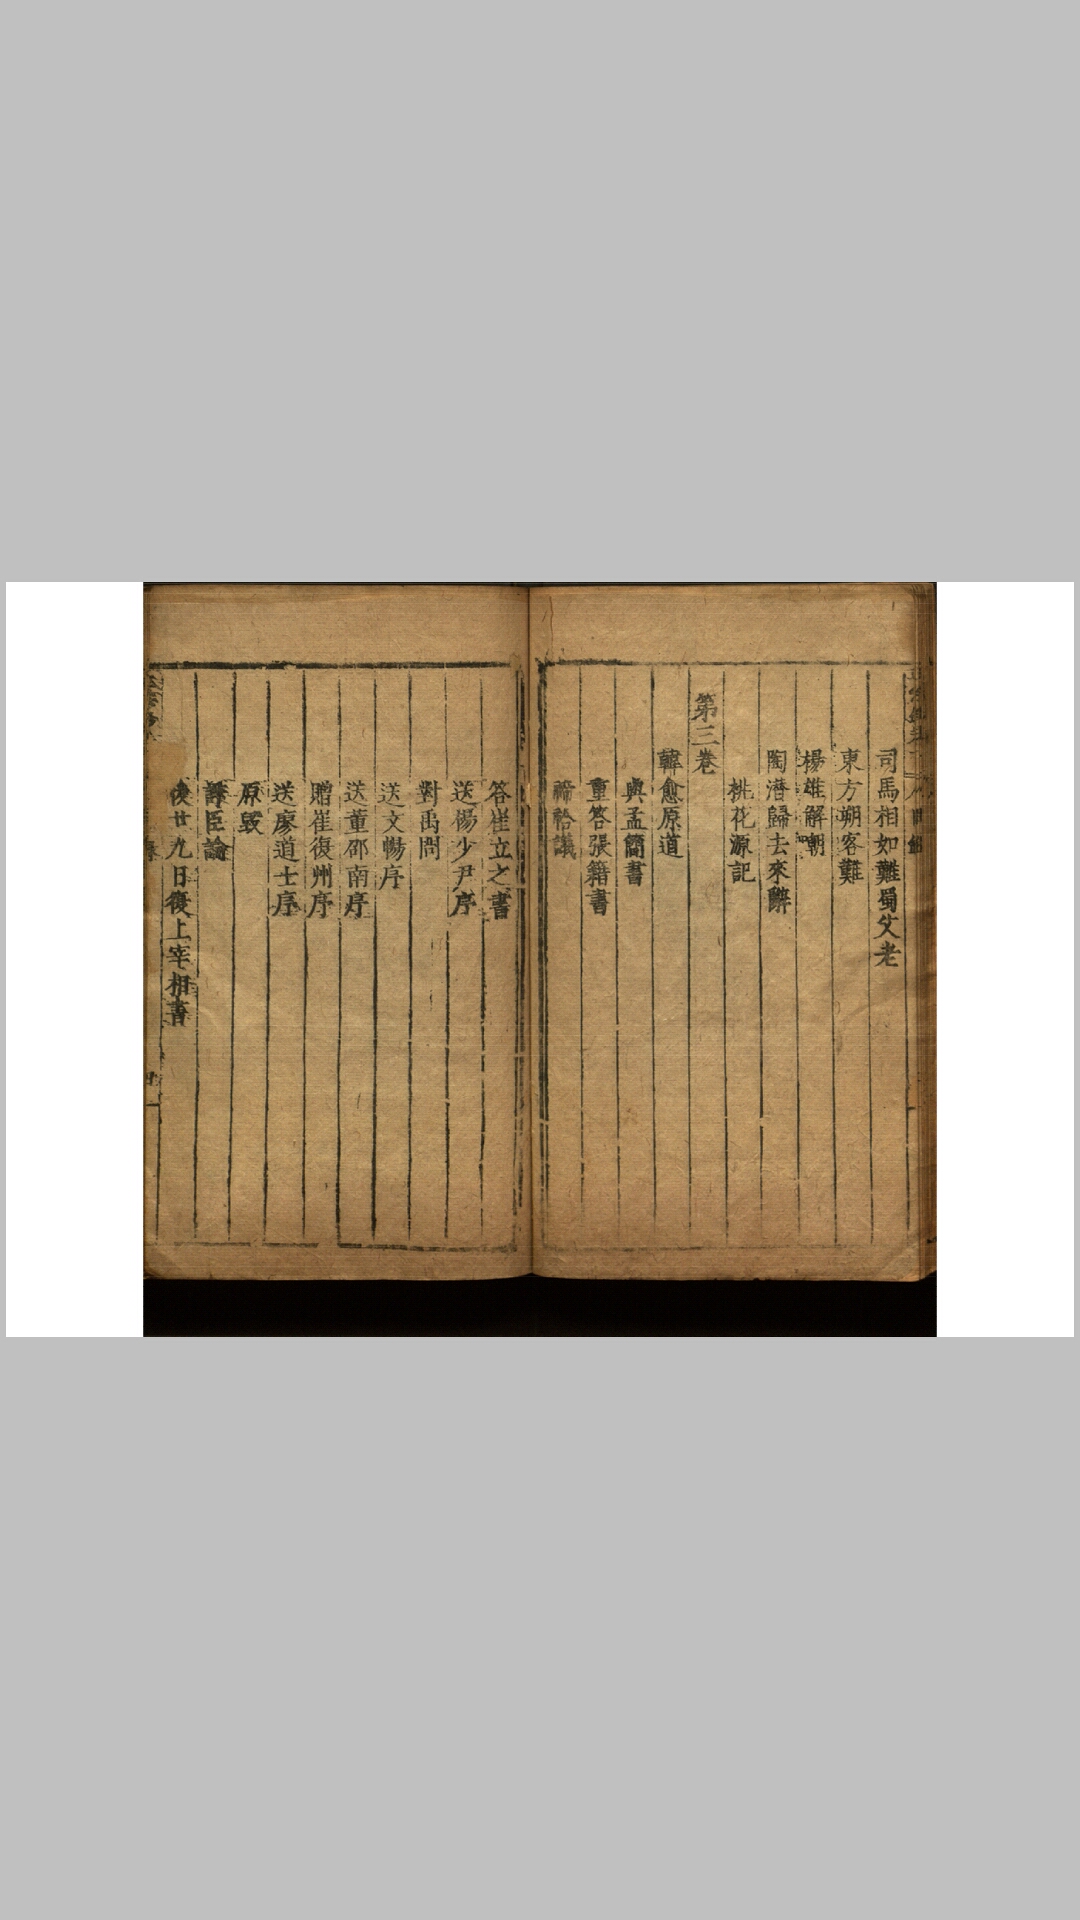 司馬相如難蜀父老
東方朔客難
楊雄解嘲
陶潛歸去來辭
桃花源記
第三卷
韓愈原道
與孟簡書
重答張籍書
禘祫議
答崔立之書
送楊少尹序
對禹問
送文暢序
送董邵南序
贈崔復州序
送廖道士序
原毀
諍臣論
後廿九日復上宰相書